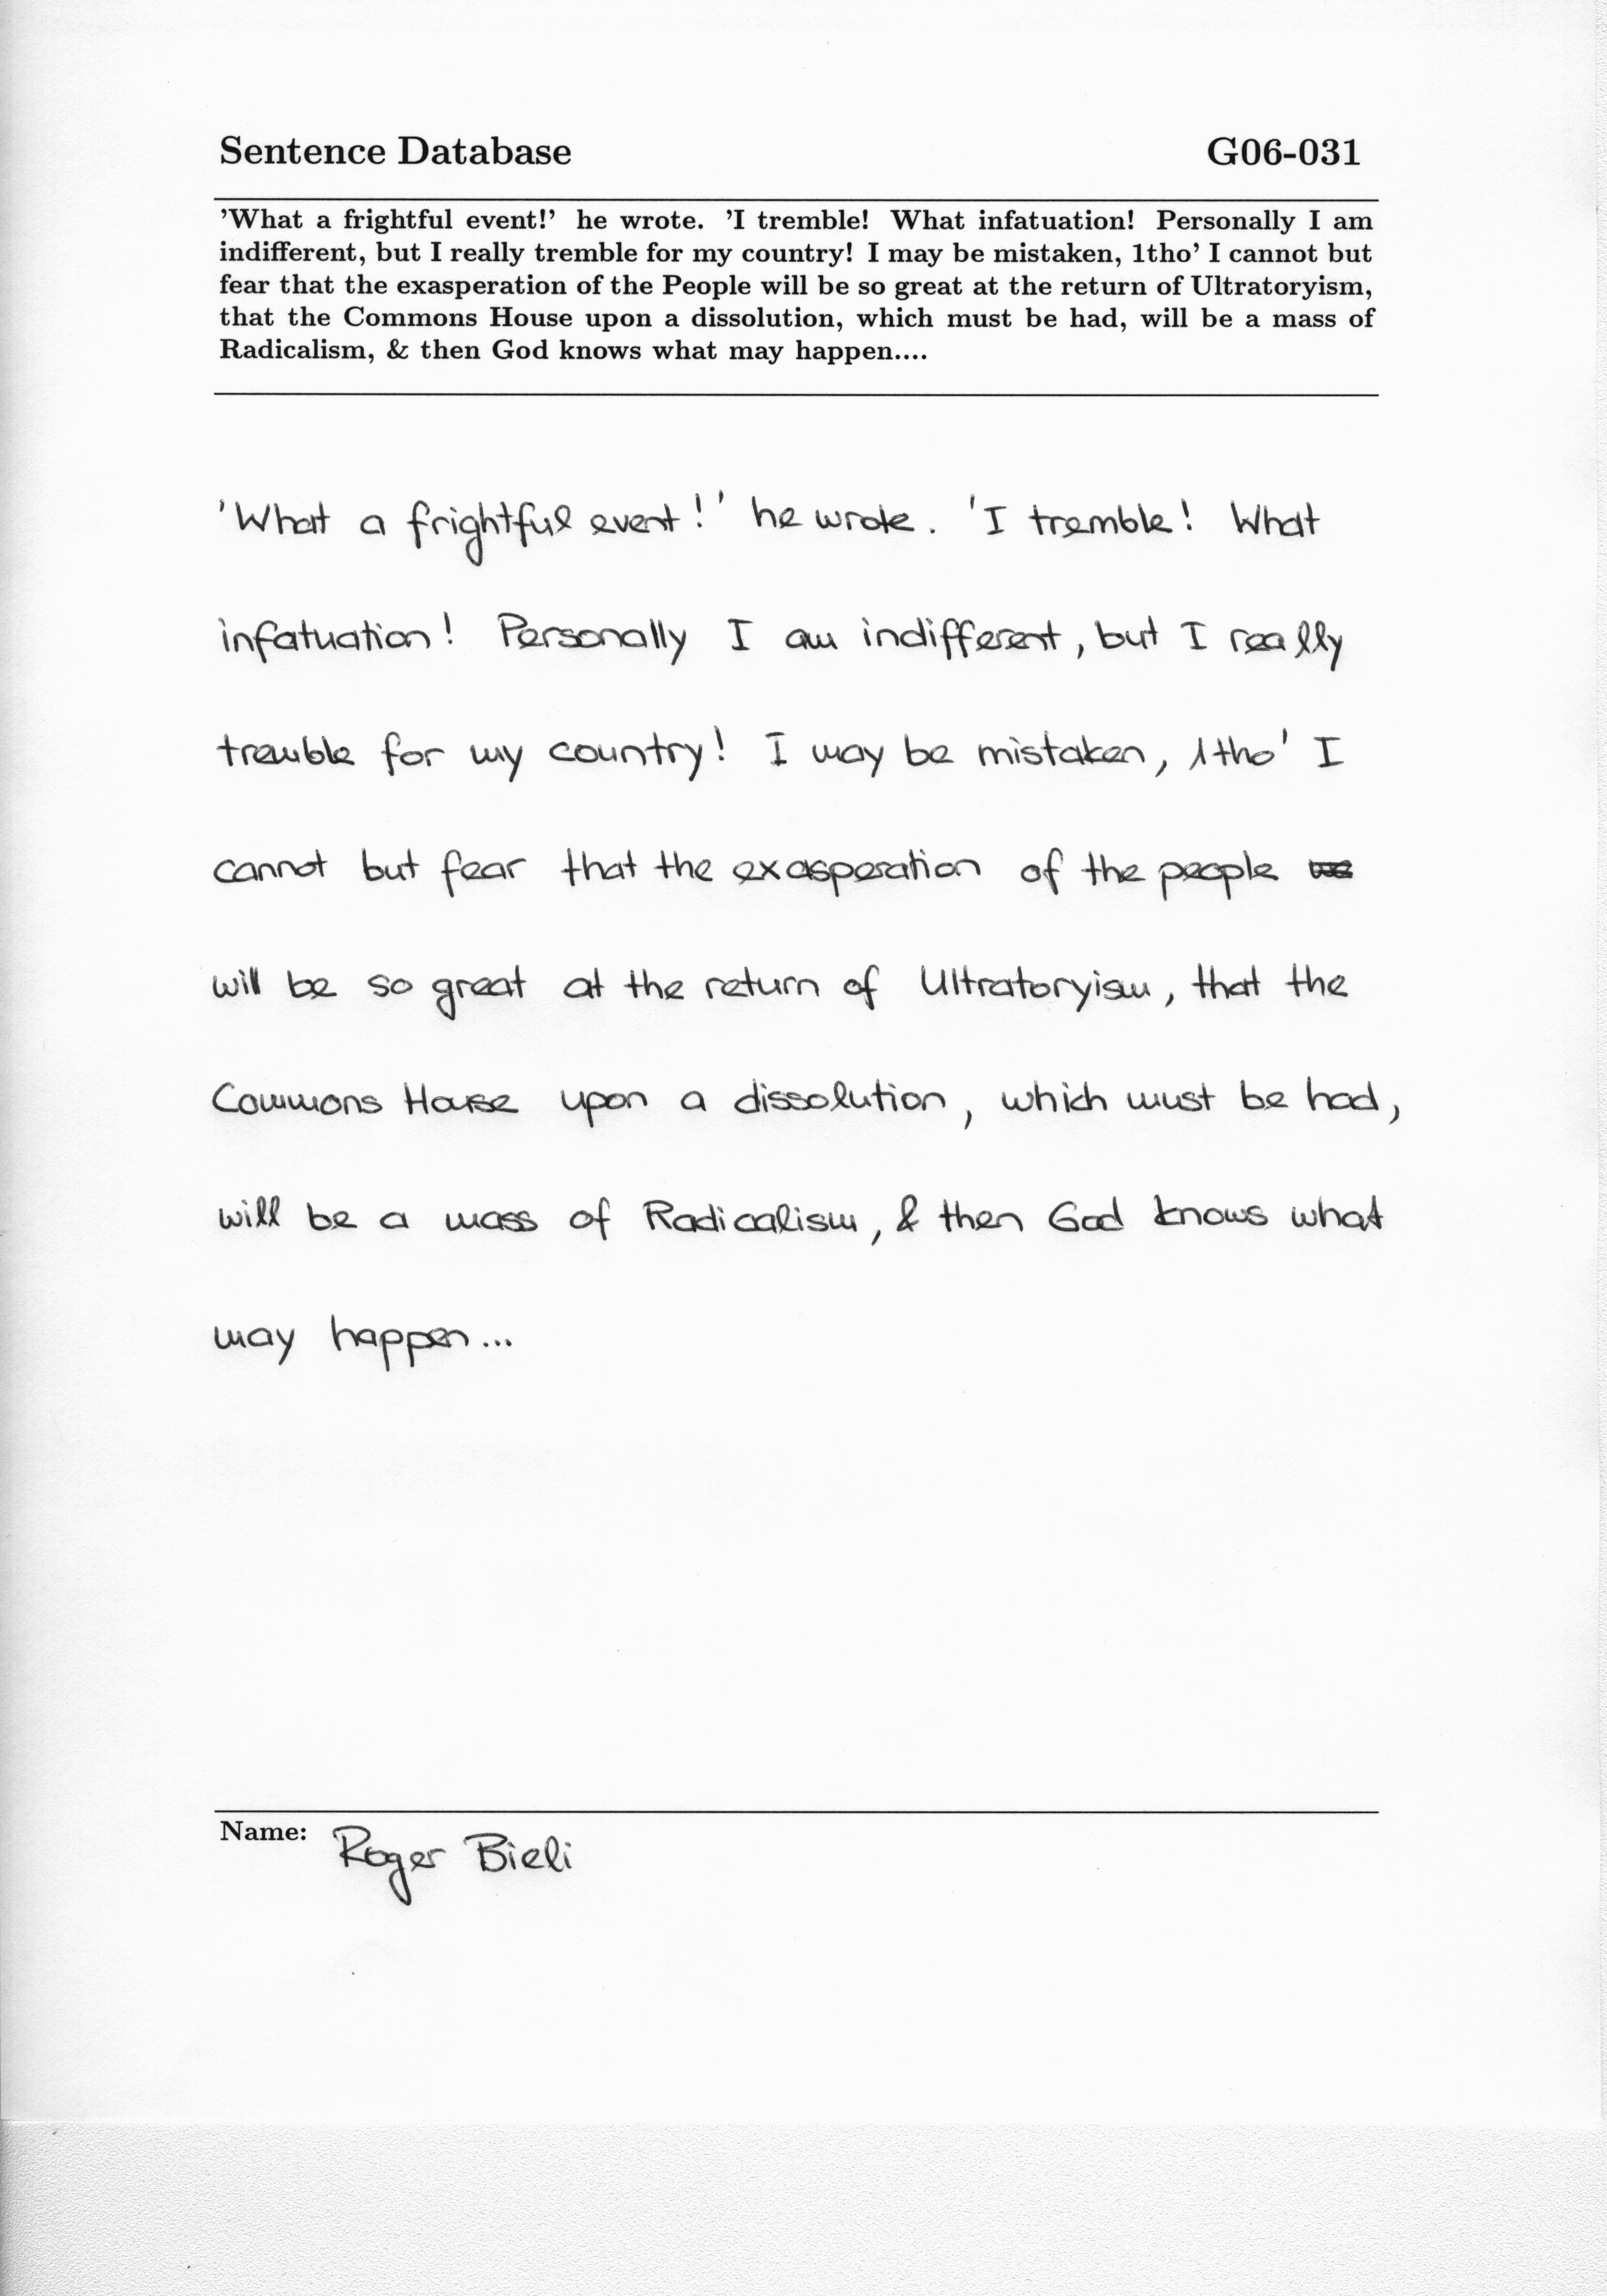 Sentence Database G06-031
’What a frightful event!’ he wrote. ’I tremble! What infatuation! Personally I am
indifferent, but I really tremble for my country! I may be mistaken, 1tho’ I cannot but
fear that the exasperation of the People will be so great at the return of Ultratoryism,
that the Commons House upon a dissolution, which must be had, will be a mass of
Radicalism, & then God knows what may happen....
'What a frightful event!' he wrote. 'I tremble! What
infatuation! Personally I am indifferent, but I really
tremble for my country! I may be mistaken, 1tho' I
cannot but fear that the exasperation of the people
will be so great at the return of Ultratoryism, that the
Commons House upon a dissolution, which must be had,
will be a mass of Radicalism, & then God knows what
may happen...
Name: Roger Bieli